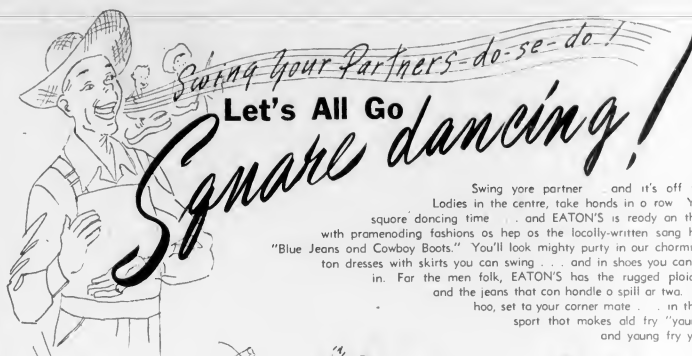 Swing Your Partners - do-se-do!
Let's All Go
Square dancing!
Swing yore partner . . and it's off
Lodies in the centre, take honds in o row Y
square doncing time . . and EATON'S is reody on th
with pramenoding fashions os hep os the locolly-written sang h
"Blue Jeans ond Cowboy Boots." You'll look mighty purty in our chorm
ton dresses with skirts you can swing . . . and in shoes you can
in. Far the men folk, EATON'S has the rugged ploid
and the jeans that con hondle o spill ar twa.
hoo, set ta your corner mate . . in th
sport that mokes ald fry "youn
and yaung fry y